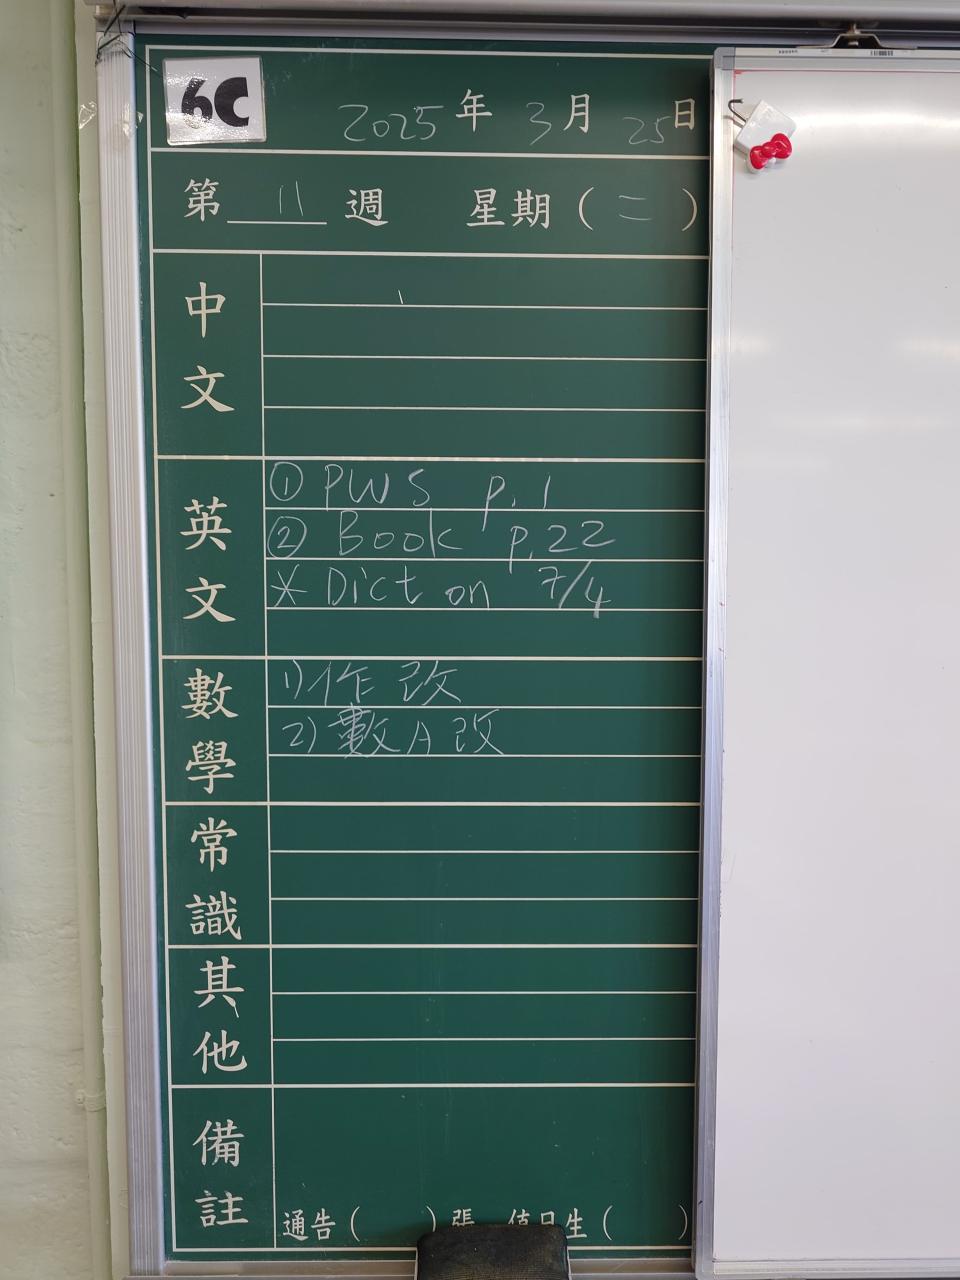 6C
2025年3月25日
第11週 星期(二)
中文
英文
① PWS p.1
② Book p.22
* Dict on 7/4
數學
1)作改
2)數A改
常識
其他
備註
通告( )張 值日生( )